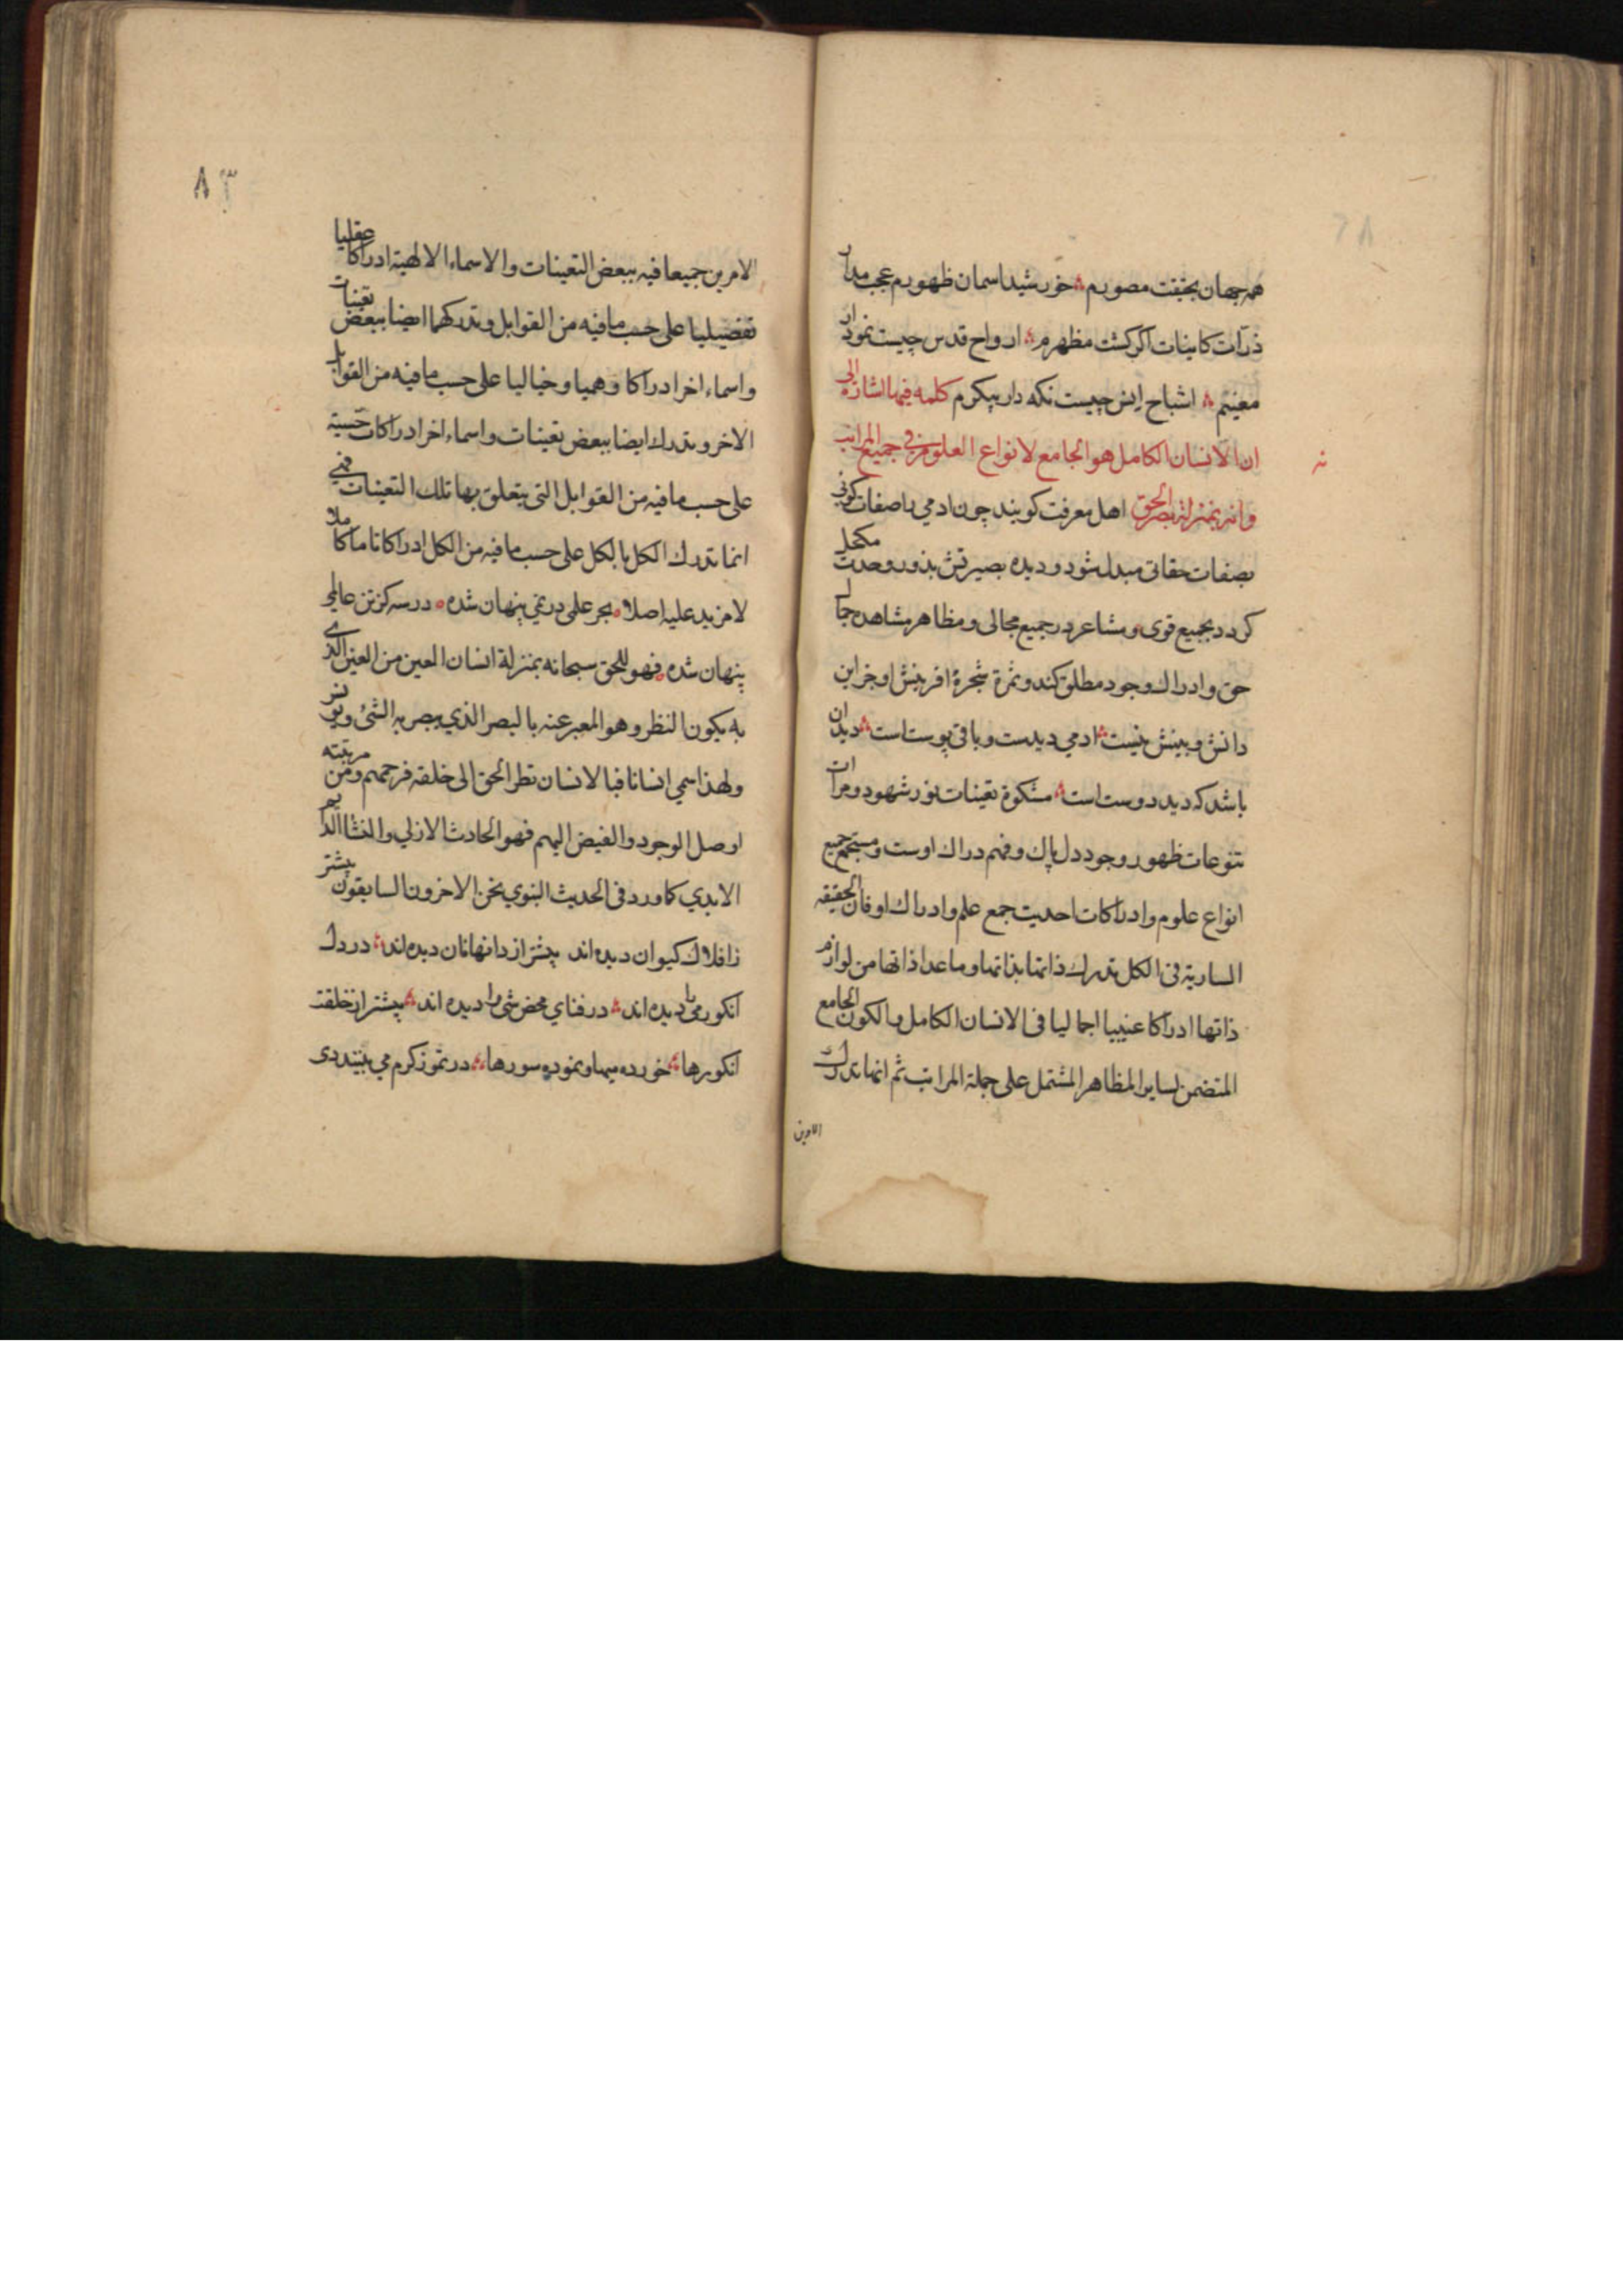 همه جهان بحقیقت مصورم ؞ خورشید اسمان ظهورم عجب مدار
ذرات کاینات اکر کشت مظهرم ؞ ارواح قدس چیست نمودار
معنیم ؞ اشباح انس چیست نکه دار پیکرم کلمه فیها اشارة الی
ان الانسان الکامل هو الجامع لانواع العلوم فی جمیع المراتب
وانه بمنزلة بصر الحق اهل معرفت کویند چون ادمی را صفات کونی
بصفات حقانی مبدل شود و دیده بصیرتش بنور وحدت مکحل
کردد بجمیع قوی و مشاعر در جمیع مجالی و مظاهر مشاهده جمال
حق و ادراک وجود مطلق کند و ثمرة شجرة افرینش او جز این
دانش و بینش نیست ؞ ادمی دیدست و باقی پوست است ؞ دید ان
باشد که دید دوست است ؞ مشکوة تعینات نور شهود و مرات
تنوعات ظهور وجود دل پاک و فهم دراک اوست و مستجمع جمیع
انواع علوم و ادراکات احدیت جمع علم و ادراک او فان الحقیقه
الساریة فی الکل تدرک ذاتها بذاتها و ما عدا ذاتها من لوازم
ذاتها ادراکا عینیا اجمالیا فی الانسان الکامل والکون الجامع
المتضمن لسایر المظاهر المشتمل علی جملة المراتب ثم انها تدرک
الامرین
٨٣
الامرین جمیعا فیه ببعض التعینات والاسماء الالهیة ادراکا عقلیا
تفصیلیا علی حسب ما فیه من القوابل وتدرکهما ایضا ببعض تعینات
واسماء اخر ادراکا وهمیا وخیالیا علی حسب ما فیه من القوابل
الاخر وتدرک ایضا ببعض تعینات واسماء اخر ادراکات حسیة
علی حسب ما فیه من القوابل التی یتعلق بها تلک التعینات فهی
انما تدرک الکل بالکل علی حسب ما فیه من الکل ادراکا تاما کاملا
لا مزید علیه اصلا ؞ بحر علمی در نمی پنهان شده ؞ در سه کز تن عالمی
پنهان شده ؞ فهو للحق سبحانه بمنزلة انسان العین من العین الذی
به یکون النظر وهو المعبر عنه بالبصر الذی یبصر به الشئ
ولهذا سمی انسانا فبالانسان نظر الحق الی خلقه فرحمهم ومن مرتبته
اوصل الوجود والفیض الیهم فهو الحادث الازلی والنشا الدایم
الابدی کما ورد فی الحدیث النبوی نحن الاخرون السابقون پیشتر
زافلاک کیوان دیده اند پیشتر از دانها نان دیده اند ؞ در دل
انکور می را دیده اند ؞ در فنای محض شی را دیده اند ؞ پیشتر از خلقت
انکورها ؞ خورده میها و نموده سورها ؞ در تموز کرم می بینند دی